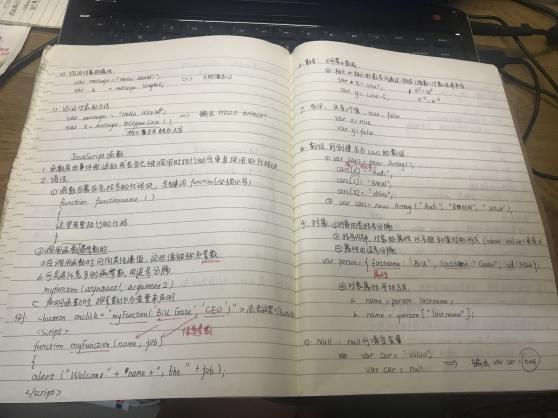 10. 访问对象的属性
var message = "Hello World!";
var x = message.length;  ⟹  X的值为12
11. 访问对象的方法
var message = "Hello World";
var x = message.toUpperCase();  ⟹  输出 HELLO WORLD
JavaScript 函数
1. 函数是由事件驱动的或者当它被调用时执行的可重复使用的代码块
2. 语法
① 函数包裹在花括号的代码块,关键词 function
function functionname ()
{
这里是要执行的代码
}
② 调用函数带参数的
a. 在调用函数时可向其传递值,这些值被称为参数
b. 可发送任意多的参数,由逗号分隔
myfunction (argument1, argument2)
c. 声明函数时,把参数作为变量来声明
例 <button onclick = "myFunction('Bill Gaze', 'CEO')">点击这里</button>
<script>
function myFunction (name, job)
{
alert ("Welcome" + name + ", the " + job);
}
</script>
6. 数字
var y = 123e-5;
7. 布尔: 只有2个值 true, false
var x = true
var y = false
8. 数组
① var cars = new Array();
cars[0] = "Audi";
cars[1] = "BMW";
cars[2] = "Volvo";
② var cars = new Array ("Audi", "BMW", "Volvo");
9. 对象: ① 对象由花括号分隔
③ 属性由逗号分隔
var person = { firstname: "Bill", lastname: "Gates", id: 5566 };
属性
④ 对象属性寻址方式
a name = person.lastname;
b name = person["lastname"];
10. Null: null可清空变量
var car = "Volvo";
var car = null  ⟹  输出 var car = null